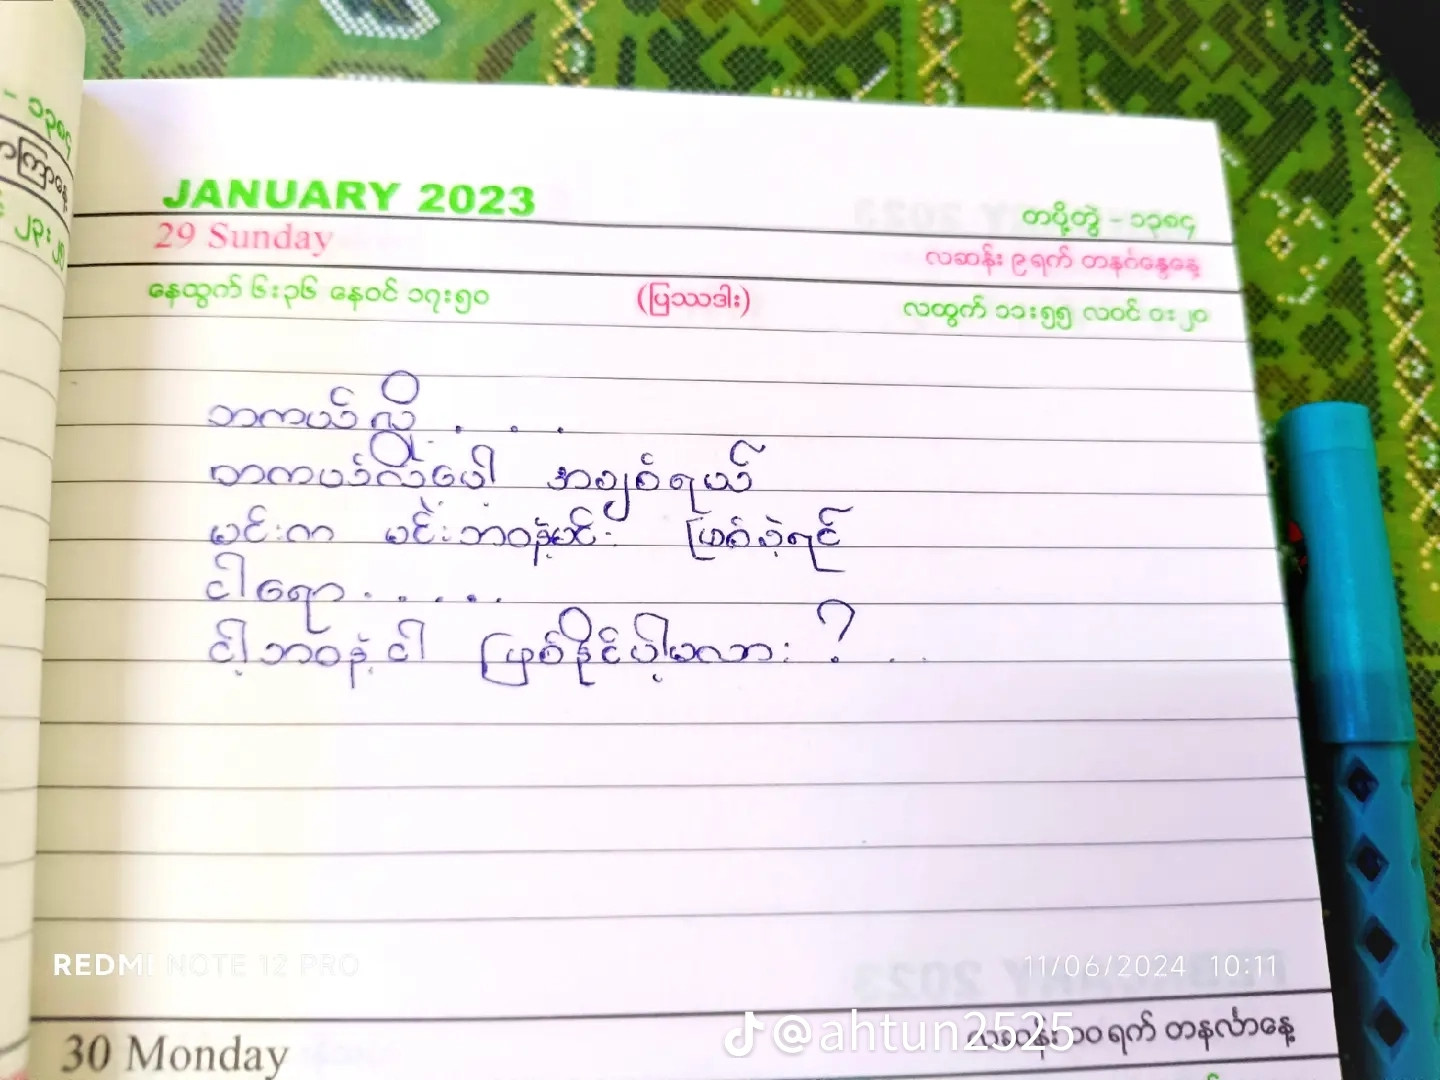 - ၁၃၈၄
JANUARY 2023
တပို့တွဲ - ၁၃၈၄
29 Sunday
လဆန်း ၉ ရက် တနင်္ဂနွေနေ့
နေထွက် ၆း၃၆ နေဝင် ၁၇း၅၀
(ပြဿဒါး)
လထွက် ၁၁း၅၅ လဝင် ၀း၂၀
တကယ်လို့ . . .
တကယ်လို့ပေါ့ အချစ်ရယ်
မင်းက မင်းဘဝနဲ့မင်း ဖြစ်ခဲ့ရင်
ငါရော . . . . .
ငါ့ဘဝနဲ့ ငါ ဖြစ်နိုင်ပါ့မလား ? . .
REDMI NOTE 12 PRO
11/06/2024 10:11
@ahtun2525
30 Monday
လဆန်း ၁၀ ရက် တနင်္လာနေ့